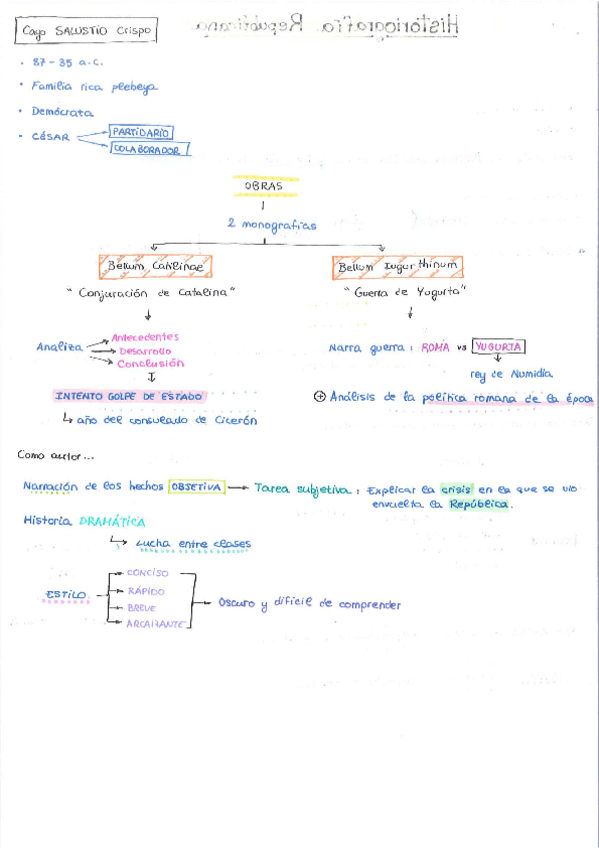 Historiografía Republicana
Cayo SALUSTIO Crispo
· 87 - 35 a.C.
· Familia rica plebeya
· Demócrata
· CÉSAR
PARTIDARIO
COLABORADOR
OBRAS
2 monografías
Bellum Catilinae
Bellum Iugurthinum
"Conjuración de Catalina"
"Guerra de Yugurta"
Analiza
Antecedentes
Desarrollo
Conclusión
Narra guerra: ROMA vs YUGURTA
rey de Numidia
INTENTO GOLPE DE ESTADO
+ Análisis de la política romana de la época
↳ año del consulado de Cicerón
Como autor...
Narración de los hechos OBJETIVA → Tarea subjetiva: Explicar la crisis en la que se vio
envuelta la República.
Historia DRAMÁTICA
↳ Lucha entre clases
ESTILO
CONCISO
RÁPIDO
BREVE
ARCAIZANTE
Oscuro y difícil de comprender